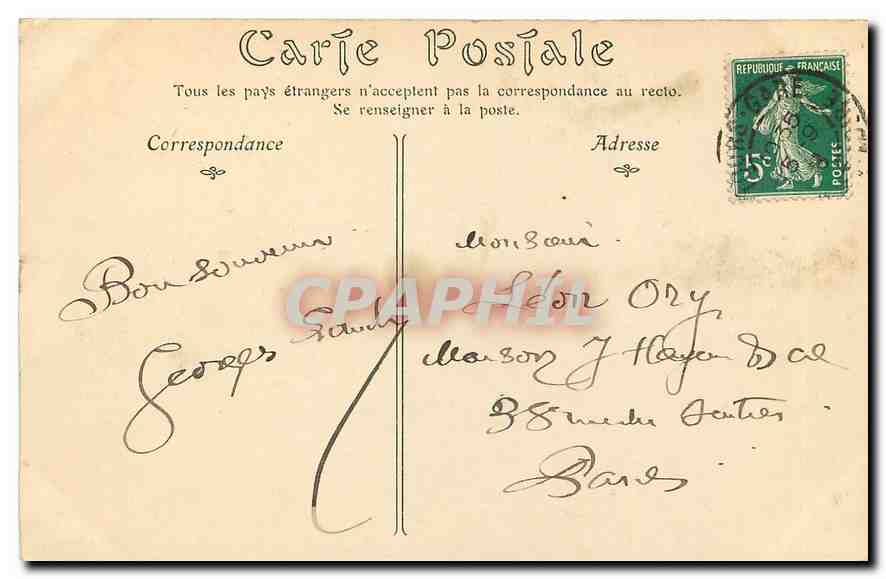 Carte Postale
Tous les pays étrangers n'acceptent pas la correspondance au recto.
Se renseigner à la poste.
Correspondance
Adresse
RÉPUBLIQUE FRANÇAISE
5c
POSTES
GARE
Bon souvenir
Georges
CPAPHIL
Monsieur
Léon Ory
Maison J Hayem & Cie
38 rue du Sentier
Paris